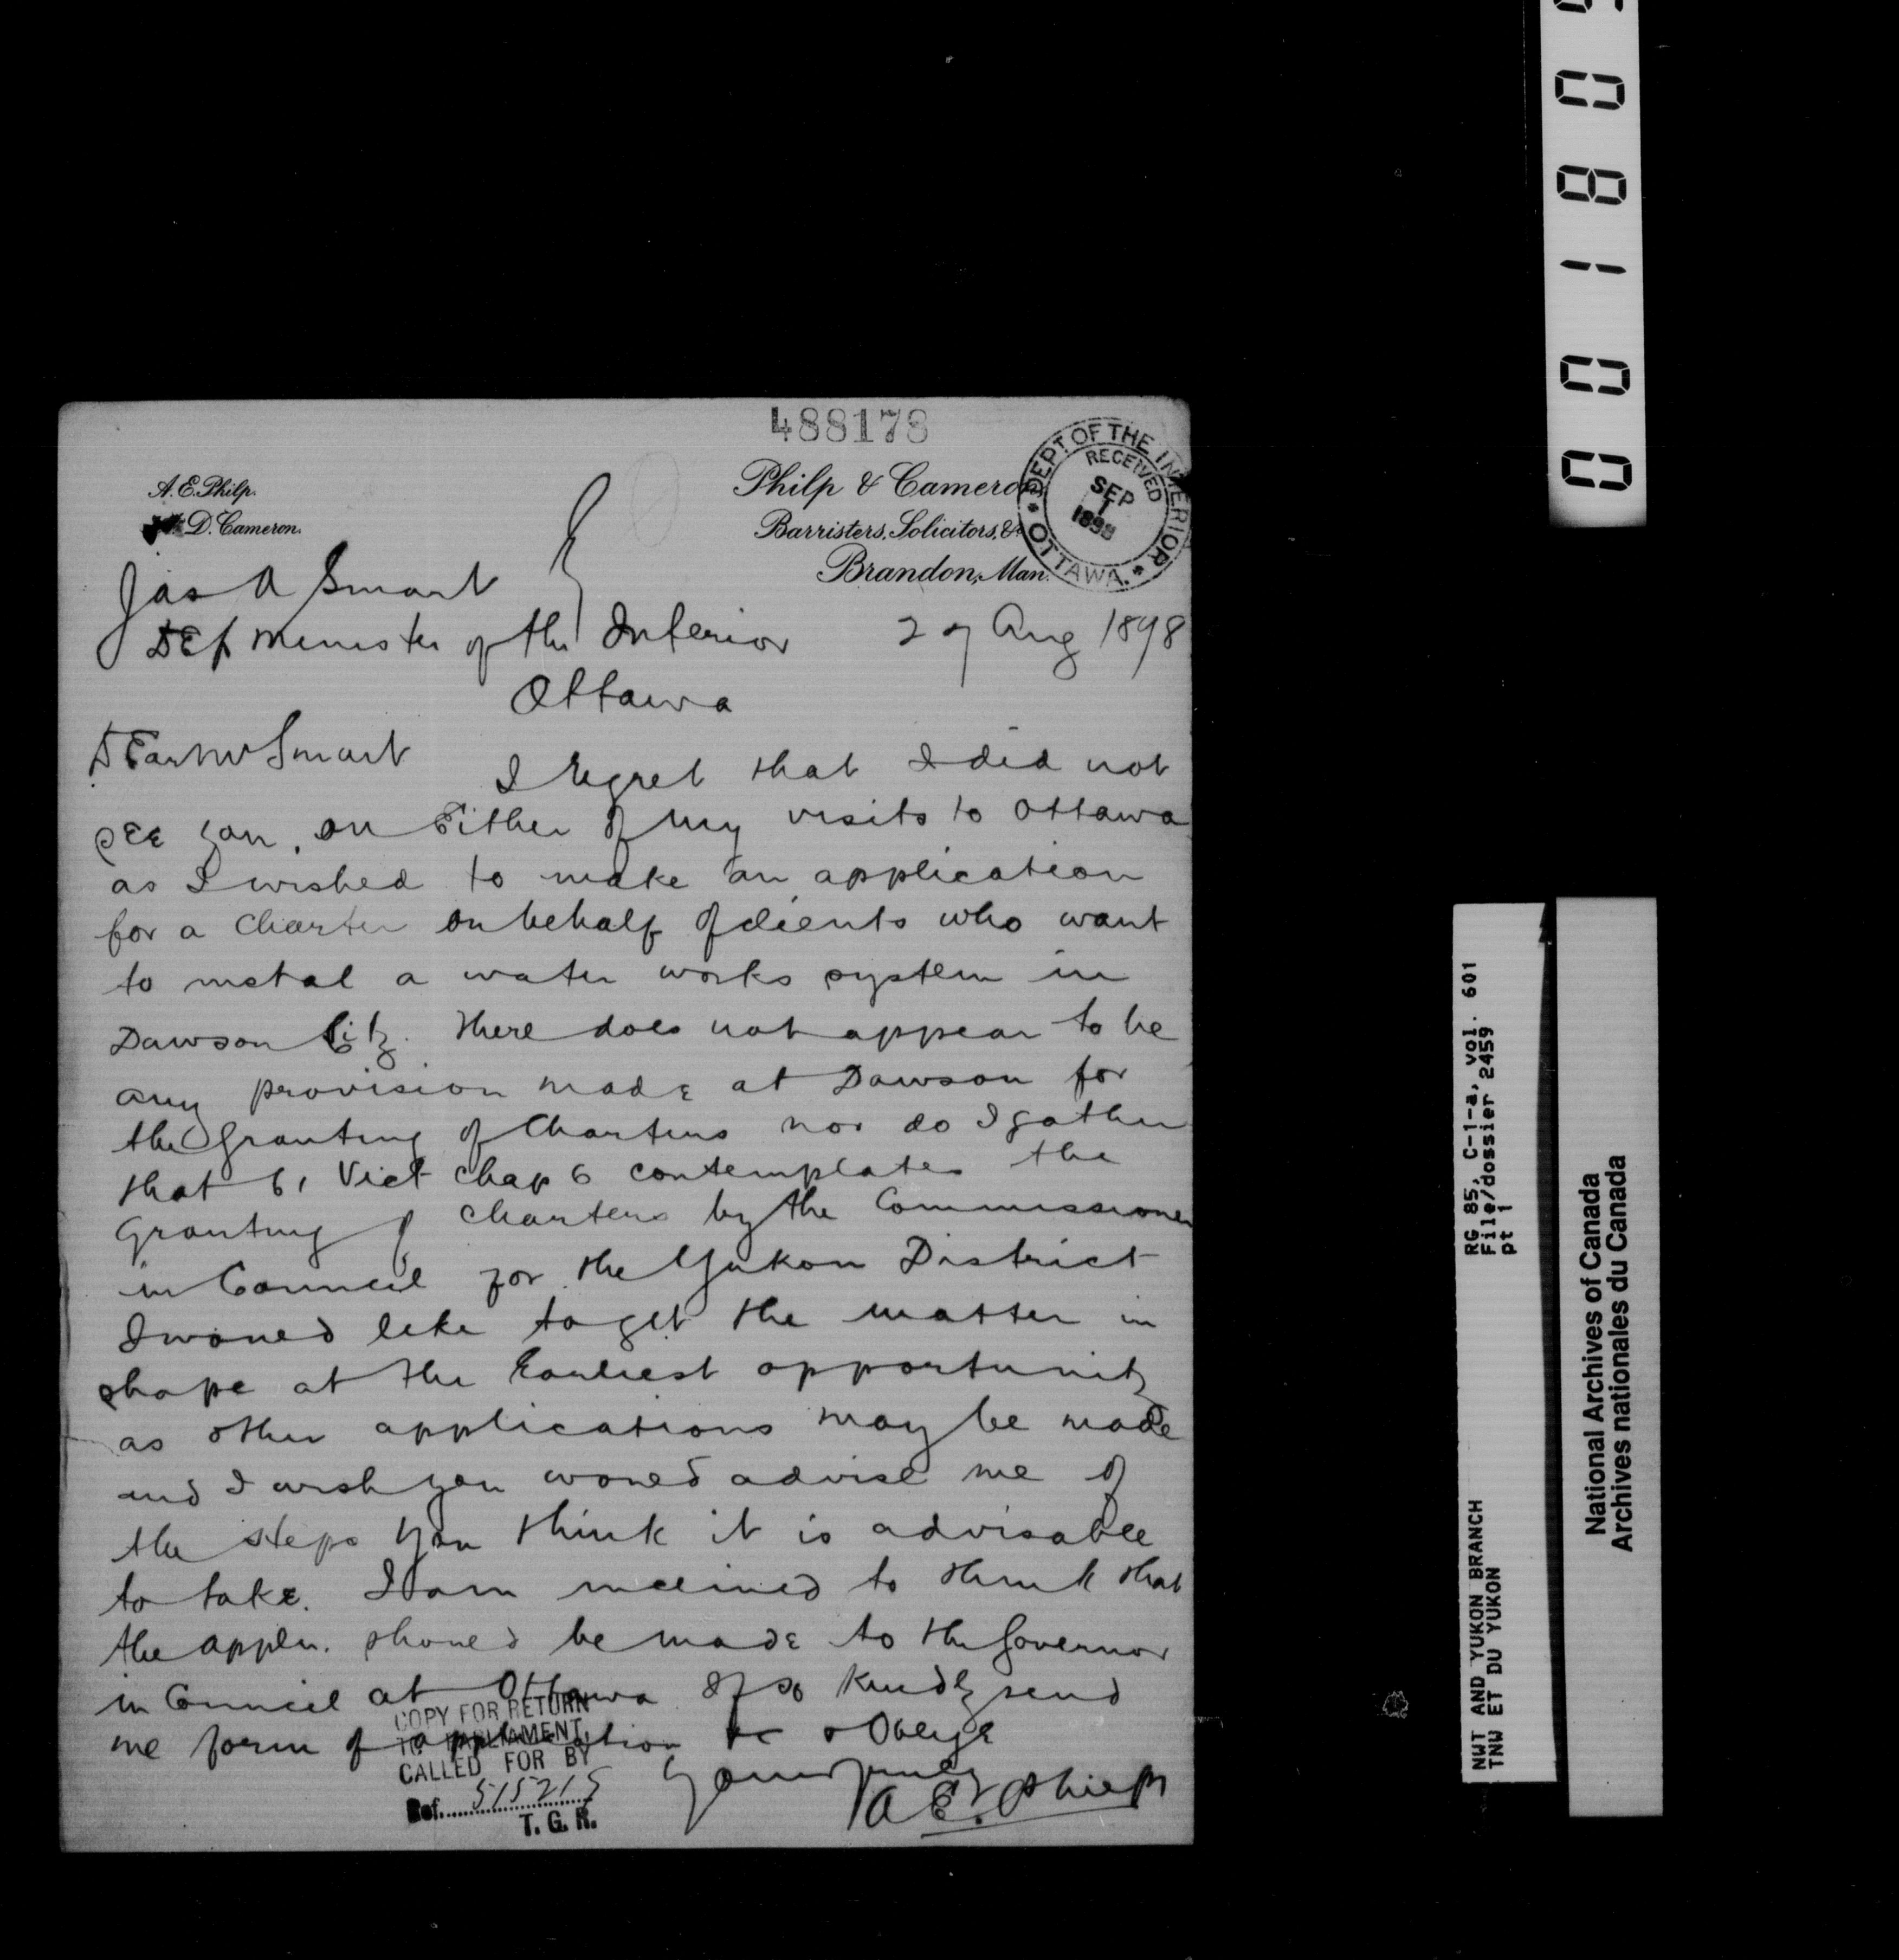 488178
A. E. Philp.
D. Cameron.
Philp & Cameron
Barristers, Solicitors, &c
Brandon, Man.
DEPT OF THE INTERIOR
RECEIVED
SEP
1
1898
OTTAWA.
Jas A Smart
Dep Minister of the Interior
27 Aug 1898
Ottawa
Dear Mr Smart
I regret that I did not
see you, on Either of my visits to Ottawa
as I wished to make an application
for a Charter on behalf of clients who want
to instal a water works system in
Dawson City. There does not appear to be
any provision made at Dawson for
the Granting of Charters nor do I gather
that 61 Vict Chap 6 contemplates the
Granting of Charters by the Commissioner
in Council for the Yukon District
I would like to get the matter in
shape at the Earliest opportunity
as other applications may be made
and I wish you would advise me of
the steps you think it is advisable
to take. I am inclined to think that
the appln. should be made to the Governor
in Council at Ottawa If so Kindly send
me form of application &c & Oblige
Yours truly
A. E. Philp
COPY FOR RETURN
TO PARLIAMENT,
CALLED FOR BY
Ref. 515215
T. G. R.
00180
RG 85, C-1-a, vol. 601
File/dossier 2459
pt 1
NWT AND YUKON BRANCH
TNW ET DU YUKON
National Archives of Canada
Archives nationales du Canada